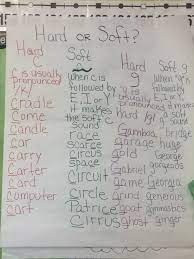 Hard or Soft?
Hard C
C is usually pronounced /k/
cradle
Come
Candle
car
carry
Carter
card
computer
cart
Soft
when c is followed by E, I or Y it makes the soft C sound
race
scarce
circus
space
Circuit
Circle
Patrice
Cirrus
Hard g
g is usually pronounced
hard /g/
Gamboa
garage
gold
Gabriel
game
grind
goat
ghost
Soft g
when "g" is followed by E, I or Y it makes a soft sound
bridge
huge
George
gorgeous
giant
Georgia
generous
gymnastics
ginger